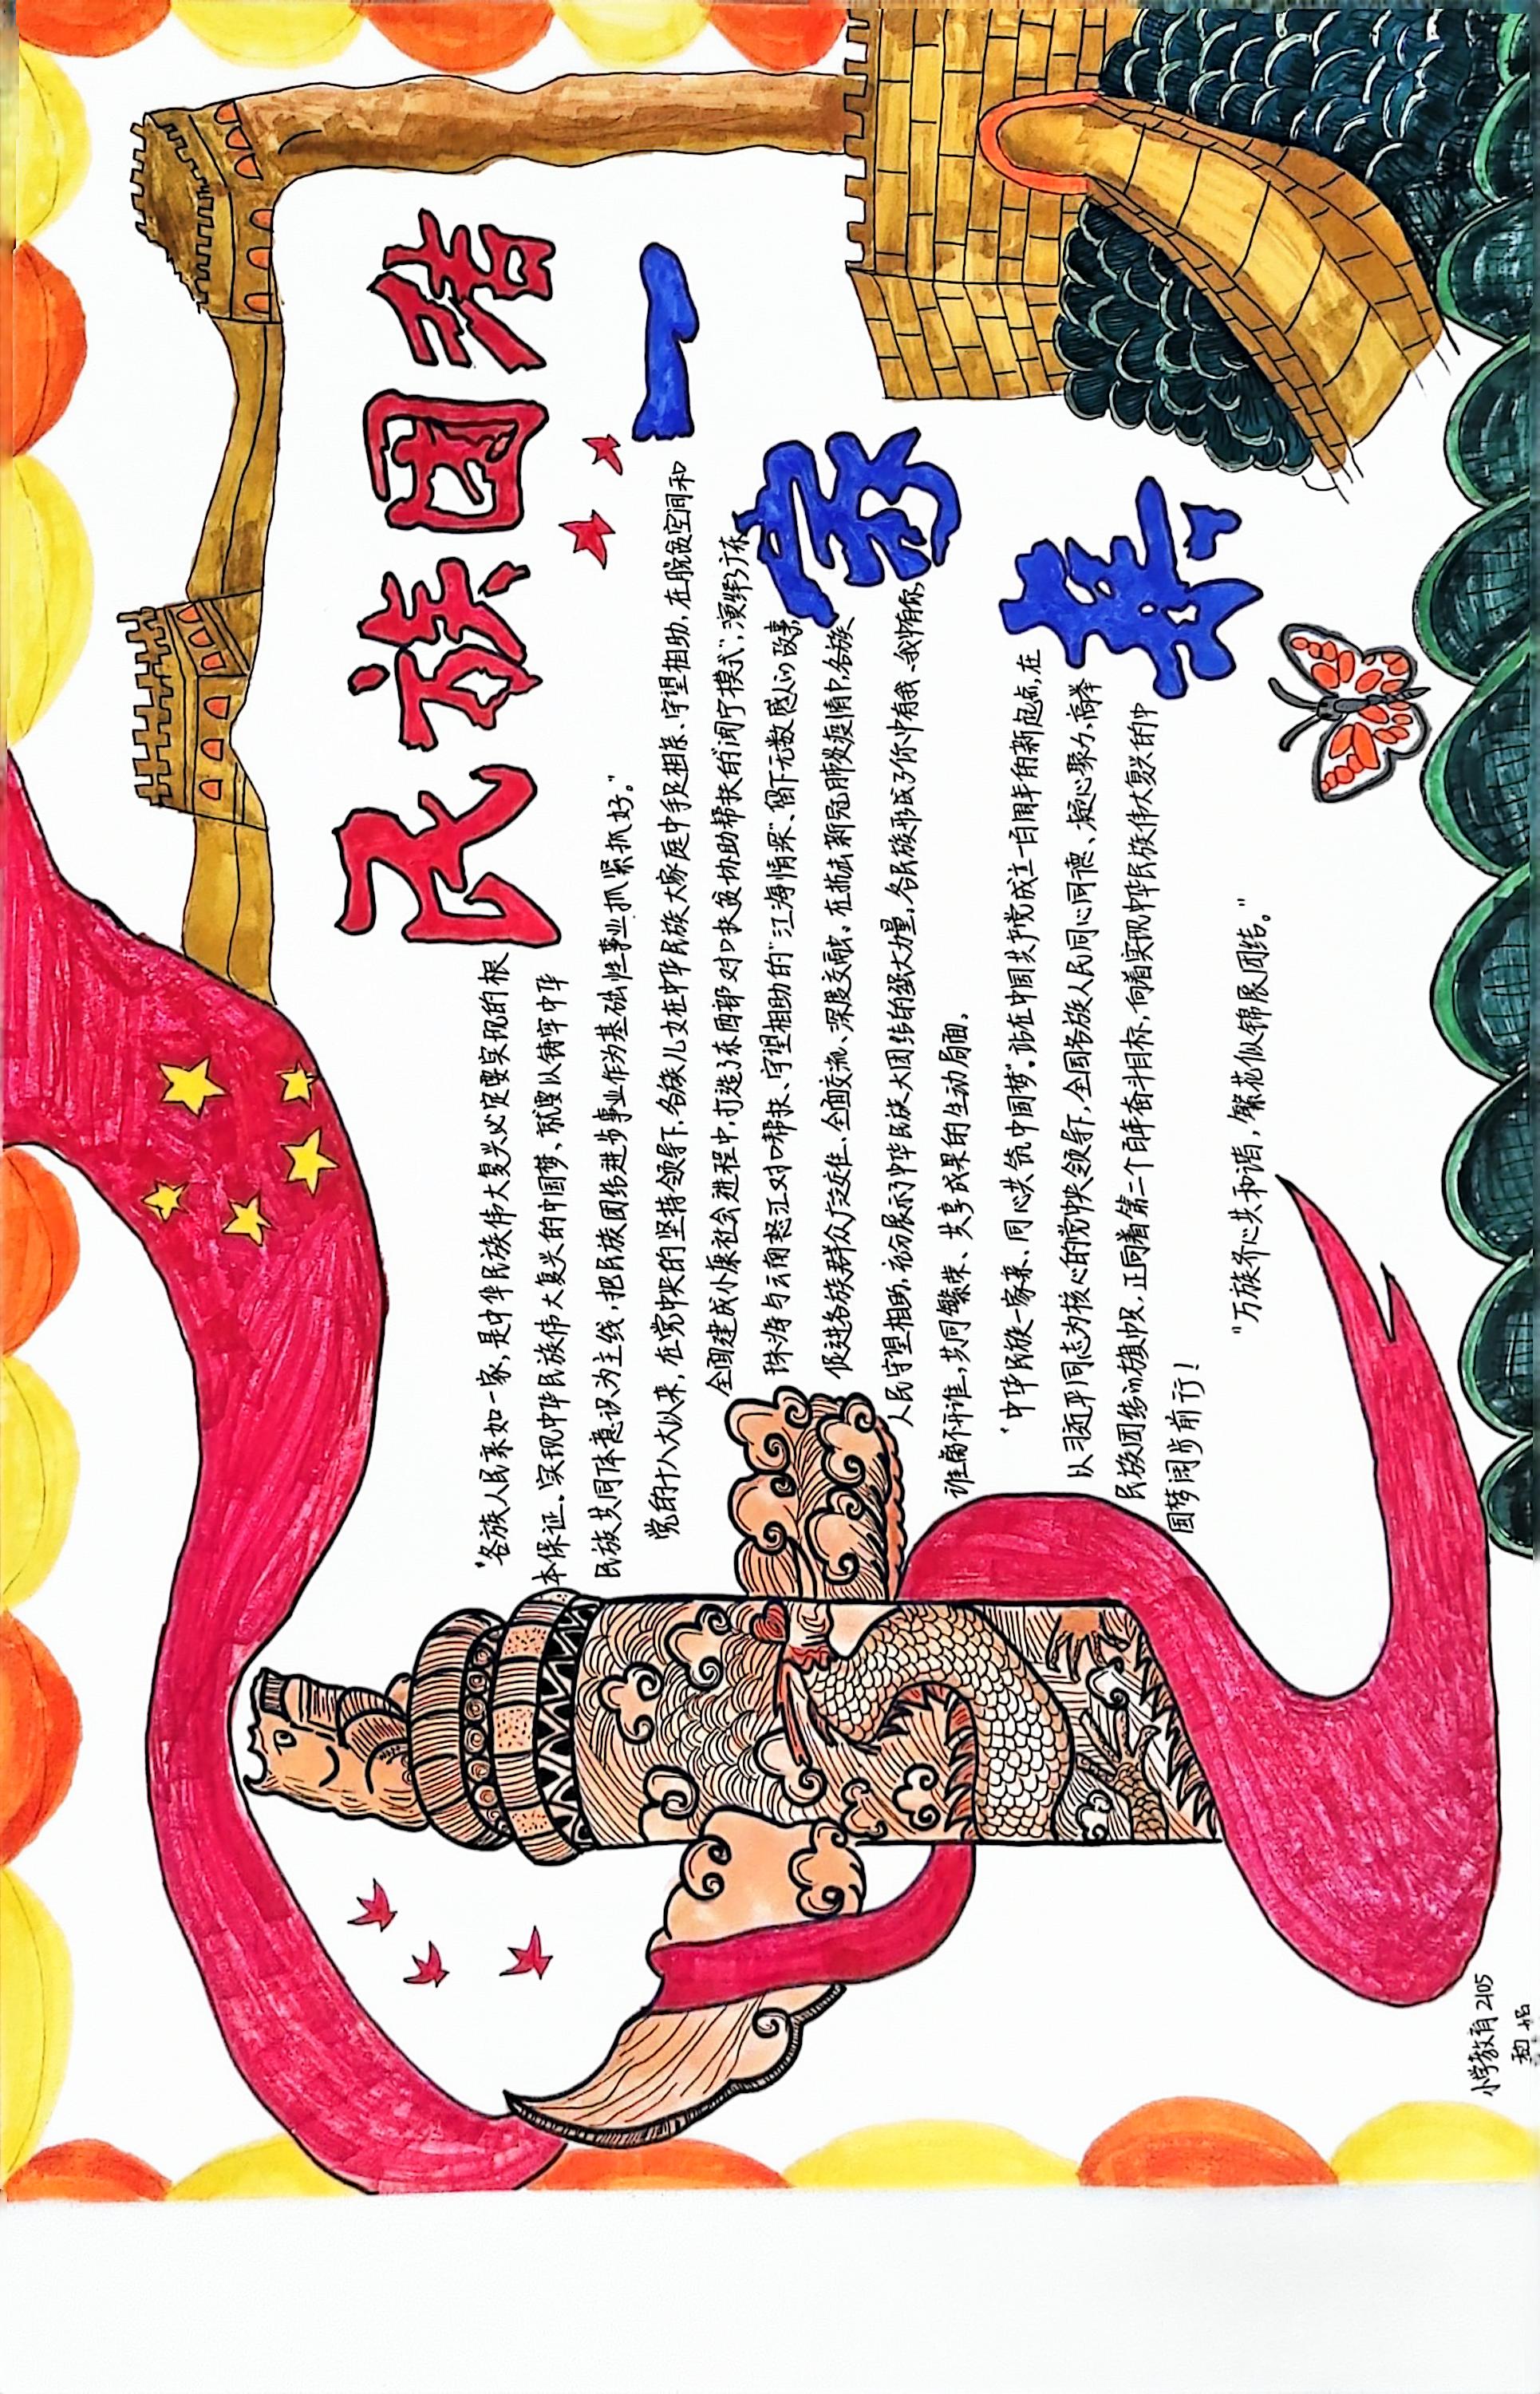 民族团结
一家亲
“各族人民亲如一家,是中华民族伟大复兴必定要实现的根
本保证。实现中华民族伟大复兴的中国梦、就要以铸牢中华
民族共同体意识为主线,把民族团结进步事业作为基础性事业抓紧抓好。”
党的十八大以来,在党中央的坚持领导下,各族儿女在中华民族大家庭中手足相亲、守望相助,在脱贫空间和
全面建成小康社会进程中,打造了东西部对口扶贫协助帮扶的“闽宁模式”,演绎了广东
珠海与云南怒江对口帮扶、守望相助的“江海情深”、留下无数感人的故事,
促进各族群众广泛交往、全面交流、深度交融。在抗击新冠肺炎疫情中,各族
人民守望相助,充分展示了中华民族大团结的强大力量,各民族形成了你中有我、我中有你,
谁离不开谁,共同繁荣、共享成果的生动局面。
“中华民族一家亲、同心共筑中国梦”。站在中国共产党成立一百周年的新起点,在
以习近平同志为核心的党中央领导下,全国各族人民同心同德、凝心聚力、高举
民族团结的旗帜,正向着第二个百年奋斗目标,向着实现中华民族伟大复兴的中
国梦阔步前行!
“万族齐心共和谐,繁花似锦展团结。”
小学教育2105